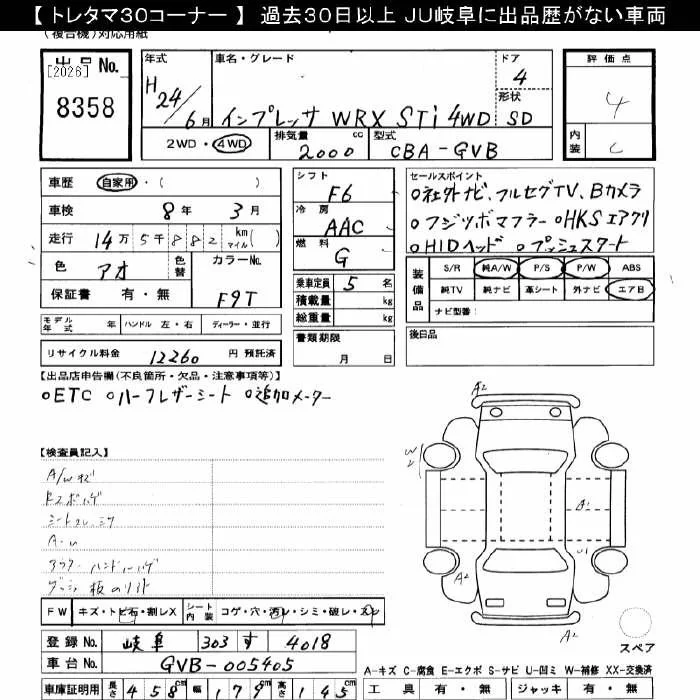 【 トレタマ30コーナー 】 過去30日以上 JU岐阜に出品歴がない車両
(複合機)対応用紙
出品No.
[2026]
8358
年式
H24/6月
車名・グレード
インプレッサ WRX STi 4WD SD
ドア
4
形状
2WD・4WD
排気量
2000 cc
型式
CBA-GVB
評価点
4
内装
C
車歴 自家用・( )
車検 8年 3月
走行 14万5千882 km マイル( )
色 アオ
色替
カラーNo.
F9T
保証書 有・無
シフト
F6
冷房
AAC
燃料
G
乗車定員 5 名
積載量 kg
総重量 kg
書類期限
月 日
セールスポイント
○社外ナビ、フルセグTV、Bカメラ
○フジツボマフラー ○HKSエアクリ
○HIDヘッド ○プッシュスタート
装備品
S/R 純A/W P/S P/W ABS
純TV 純ナビ 革シート 外ナビ エアB
ナビ型番:
後日品
モデル年式 年 ハンドル 左・右 ディーラー・並行
リサイクル料金 12260 円 預託済
【出品店申告欄(不良箇所・欠品・注意事項等)】
○ETC ○ハーフレザーシート ○追加メーター
【検査員記入】
A/Wキズ
A2
W2
A1
U1
A2
A2
FW キズ・トビ石・割レX シート内装 コゲ・穴・汚レ・シミ・破レ・スレ
スペア
登録No. 岐阜 303 す 4018
車台No. GVB-005405
A-キズ C-腐食 E-エクボ S-サビ U-凹ミ W-補修 XX-交換済
車庫証明用 長さ 458cm 幅 179cm 高さ 145cm
工具 有・無 ジャッキ 有・無